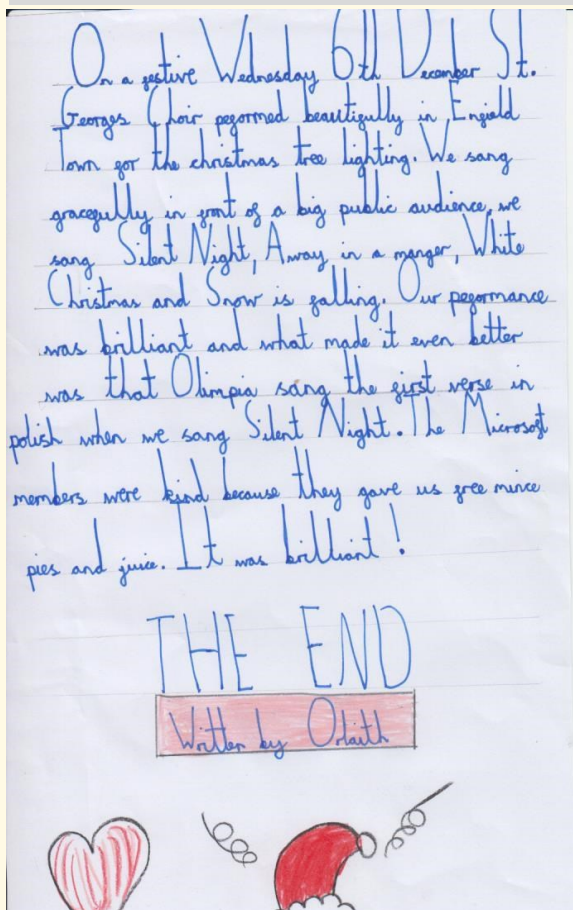 On a festive Wednesday 6th December St.
Georges Choir peformed beautifully in Enfield
Town for the christmas tree lighting. We sang
gracefully in front of a big public audience, we
sang Silent Night, Away in a manger, White
Christmas and Snow is falling. Our peformance
was brilliant and what made it even better
was that Olimpia sang the first verse in
polish when we sang Silent Night. The Microsoft
members were kind because they gave us free mince
pies and juice. It was brilliant!
THE END
Written by Orlaith